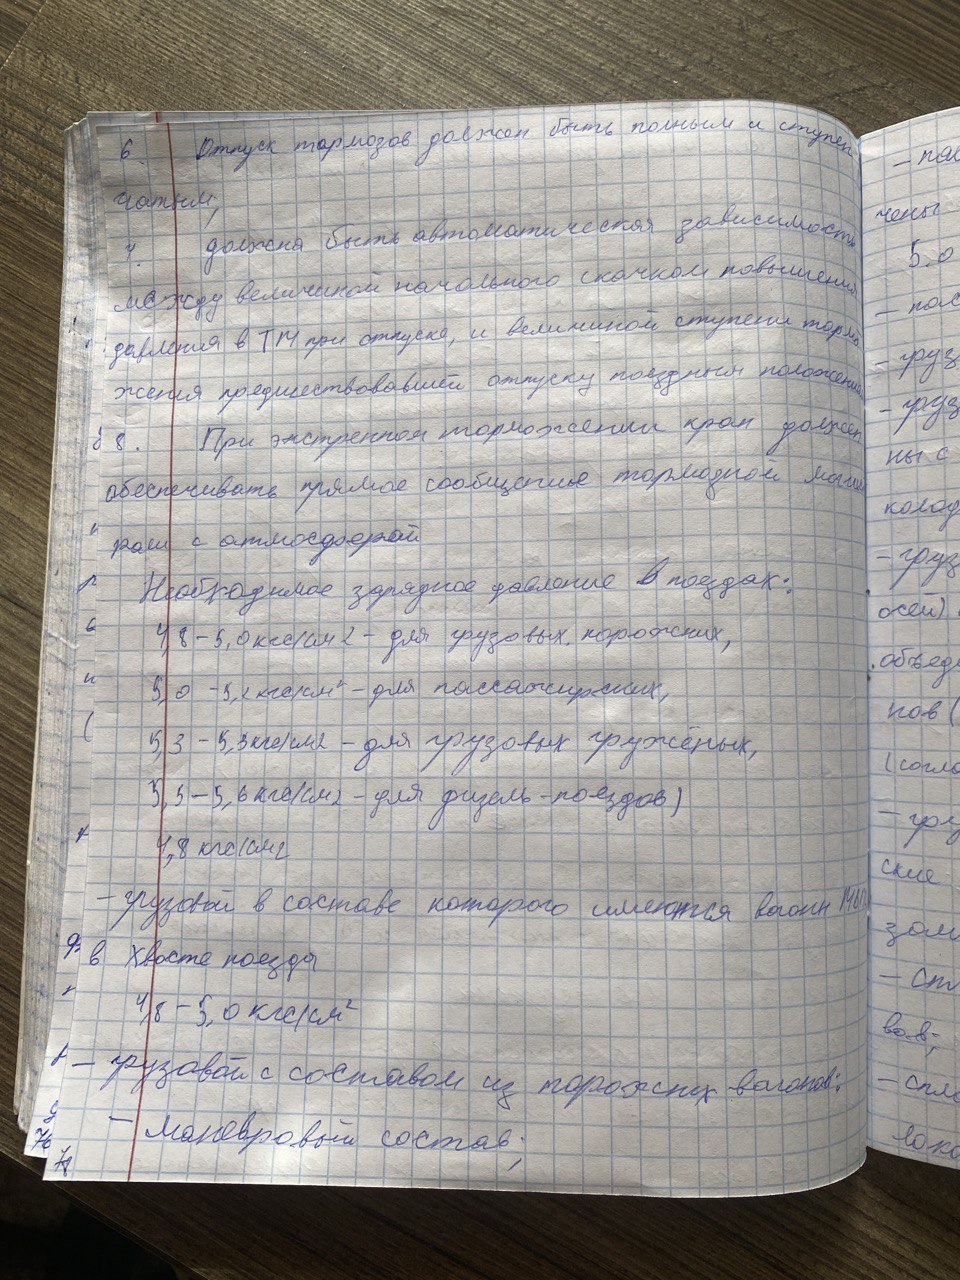 6 Отпуск тормозов должен быть полным и ступен
чатым;
7. должна быть автоматическая зависимость
между величиной начального скачком повышения
давления в ТМ при отпуске, и величиной ступени тормо
жения предшествовавшей отпуску поездным положением
8. При экстренном торможении кран должен
обеспечивать прямое сообщение тормозной магист
рали с атмосферой
Необходимое зарядное давление в поездах:
4,8-5,0 кгс/см2 - для грузовых порожних,
5,0-5,2 кгс/см² - для пассажирских,
5,3-5,3 кгс/см2 - для грузовых гружёных,
5,5-5,6 кгс/см2 - для дизель-поездов)
4,8 кгс/см2
- грузовой в составе которого имеются вагоны
в хвосте поезда
4,8-5,0 кгс/см²
- грузовой с составом из порожних вагонов:
- маневровый состав;
- пас
чены
5.0
- пас
- груз
- груз
ны с
колод
- груз
осей)
объеди
пов (
(согла
- гру
ские
зом
- спл
вов;
- спло
локо